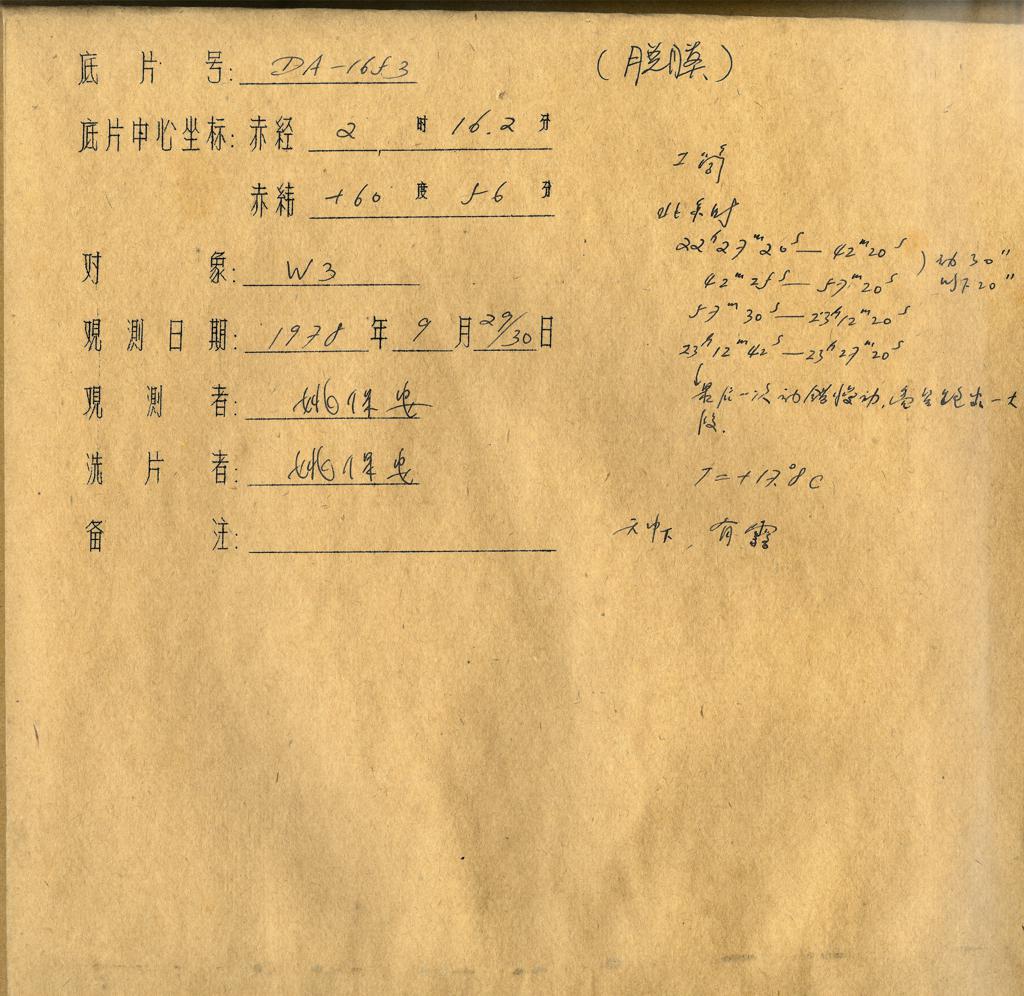 底片号: DA-1653 (脱膜)
底片中心坐标: 赤经 2 时 16.2 分
赤纬 +60 度 56 分
对象: W3
观测日期: 1978 年 9 月 29/30 日
观测者: 姚保安
洗片者: 姚保安
备注:
北京时
22h27m20s — 42m20s
42m25s — 57m20s
57m30s — 23h12m20s
23h12m42s — 23h27m20s
动30"
以下20"
最后一次动错慢动,
段.
T=+17.8°C
天中下, 有雾